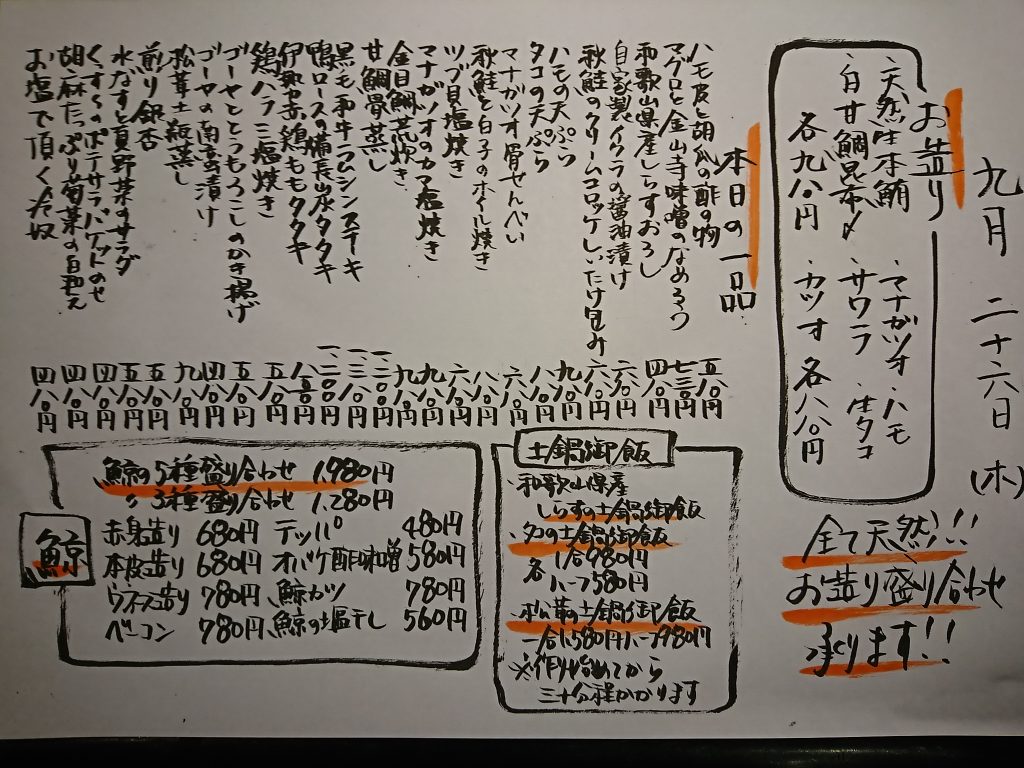 九月 二十六日 (木)
お造り
・天然生本鮪 ・マナガツオ ・ハモ
・白甘鯛昆布〆 ・サワラ ・生タコ
各九八〇円 カツオ 各八八〇円
全て天然!!!
お造り盛り合わせ
承ります!!
本日の一品
ハモ皮と胡瓜の酢の物 五八〇円
マグロと金山寺味噌のなめろう 七三〇円
和歌山県産しらすおろし 四八〇円
自家製イクラの醤油漬け 六八〇円
秋鮭のクリームコロッケしいたけ包み 六八〇円
ハモの天ぷら 九八〇円
タコの天ぷら 八八〇円
マナガツオ骨せんべい 六八〇円
秋鮭と白子のホイル焼き 八八〇円
ツブ貝塩焼き 六八〇円
マナガツオのカマ塩焼き 九八〇円
金目鯛荒炊き 九八〇円
甘鯛骨蒸し
黒毛和牛ラムシンステーキ
鴨ロースの備長炭タタキ
伊勢赤鶏ももタタキ
鶏ハラミ塩焼き 五八〇円
ゴーヤととうもろこしのかき揚げ 五八〇円
ゴーヤの南蛮漬け 四八〇円
松茸土瓶蒸し 九八〇円
煎り銀杏 五八〇円
水なすと夏野菜のサラダ 五八〇円
くずしのポテサラバゲットのせ 四八〇円
胡麻たっぷり菊菜の白和え 四八〇円
お塩で頂く冷奴 四八〇円
土鍋御飯
・和歌山県産
しらすの土鍋御飯
・タコの土鍋御飯
各 1合980円
ハーフ580円
・松茸の土鍋御飯
一合1,580円ハーフ980円
※作り始めてから
三十分程かかります
鯨
鯨の5種盛り合わせ 1,980円
〃 3種盛り合わせ 1,280円
赤身造り 680円 テッパ 480円
本皮造り 680円 オバケ酢味噌 580円
ウネス造り 780円 鯨カツ 780円
ベーコン 780円 鯨の塩干し 560円